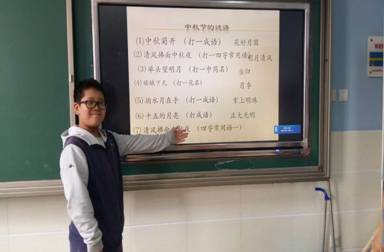 中秋节的谜语
(1)中秋菊开 (打一成语) 花好月圆
(2)清风拂面中秋夜 (打一四字常用语) 明月清风
(3)举头望明月 (打一中药名) 当归
(4)嫦娥下凡 (打一花名) 月季
(5)掬水月在手 (打一成语) 掌上明珠
(6)十五的月亮 (打成语) 正大光明
(7)清风拂面中秋夜 (四字常用语一)